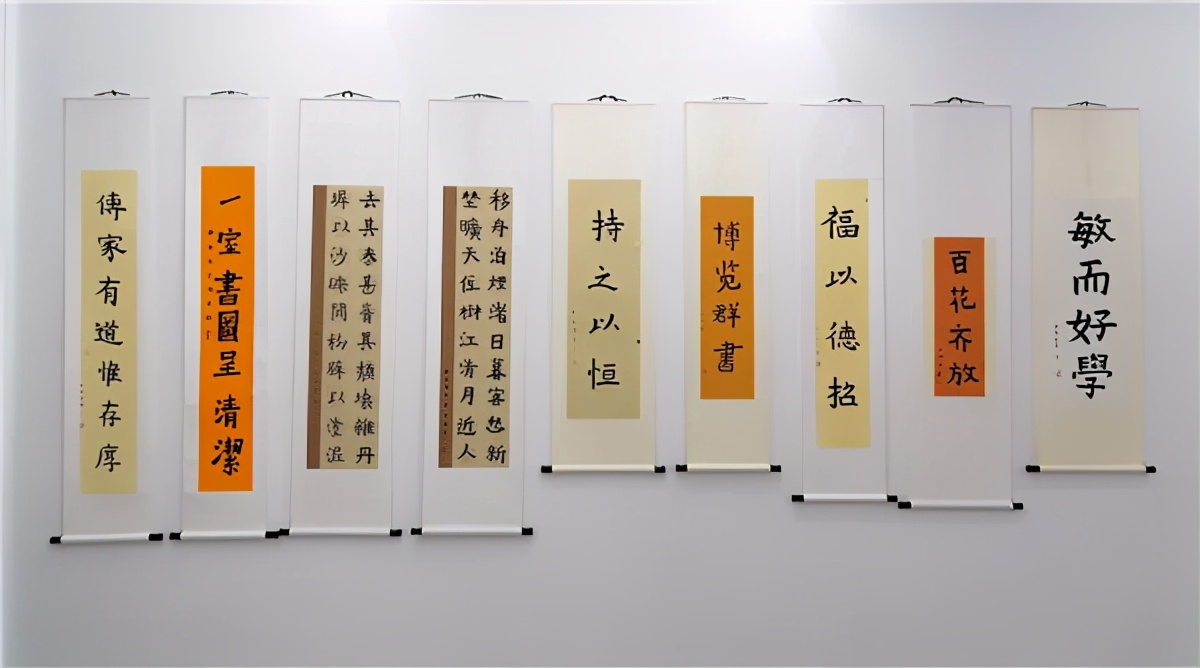 傳家有道惟存厚
一室書圖呈清潔
去其泰甚葺其頹壞雜丹
墀以沙礫間粉壁以塗泥
移舟泊煙渚日暮客愁新
埜曠天低樹江清月近人
持之以恒
博览群書
福以德招
百花齐放
敏而好學